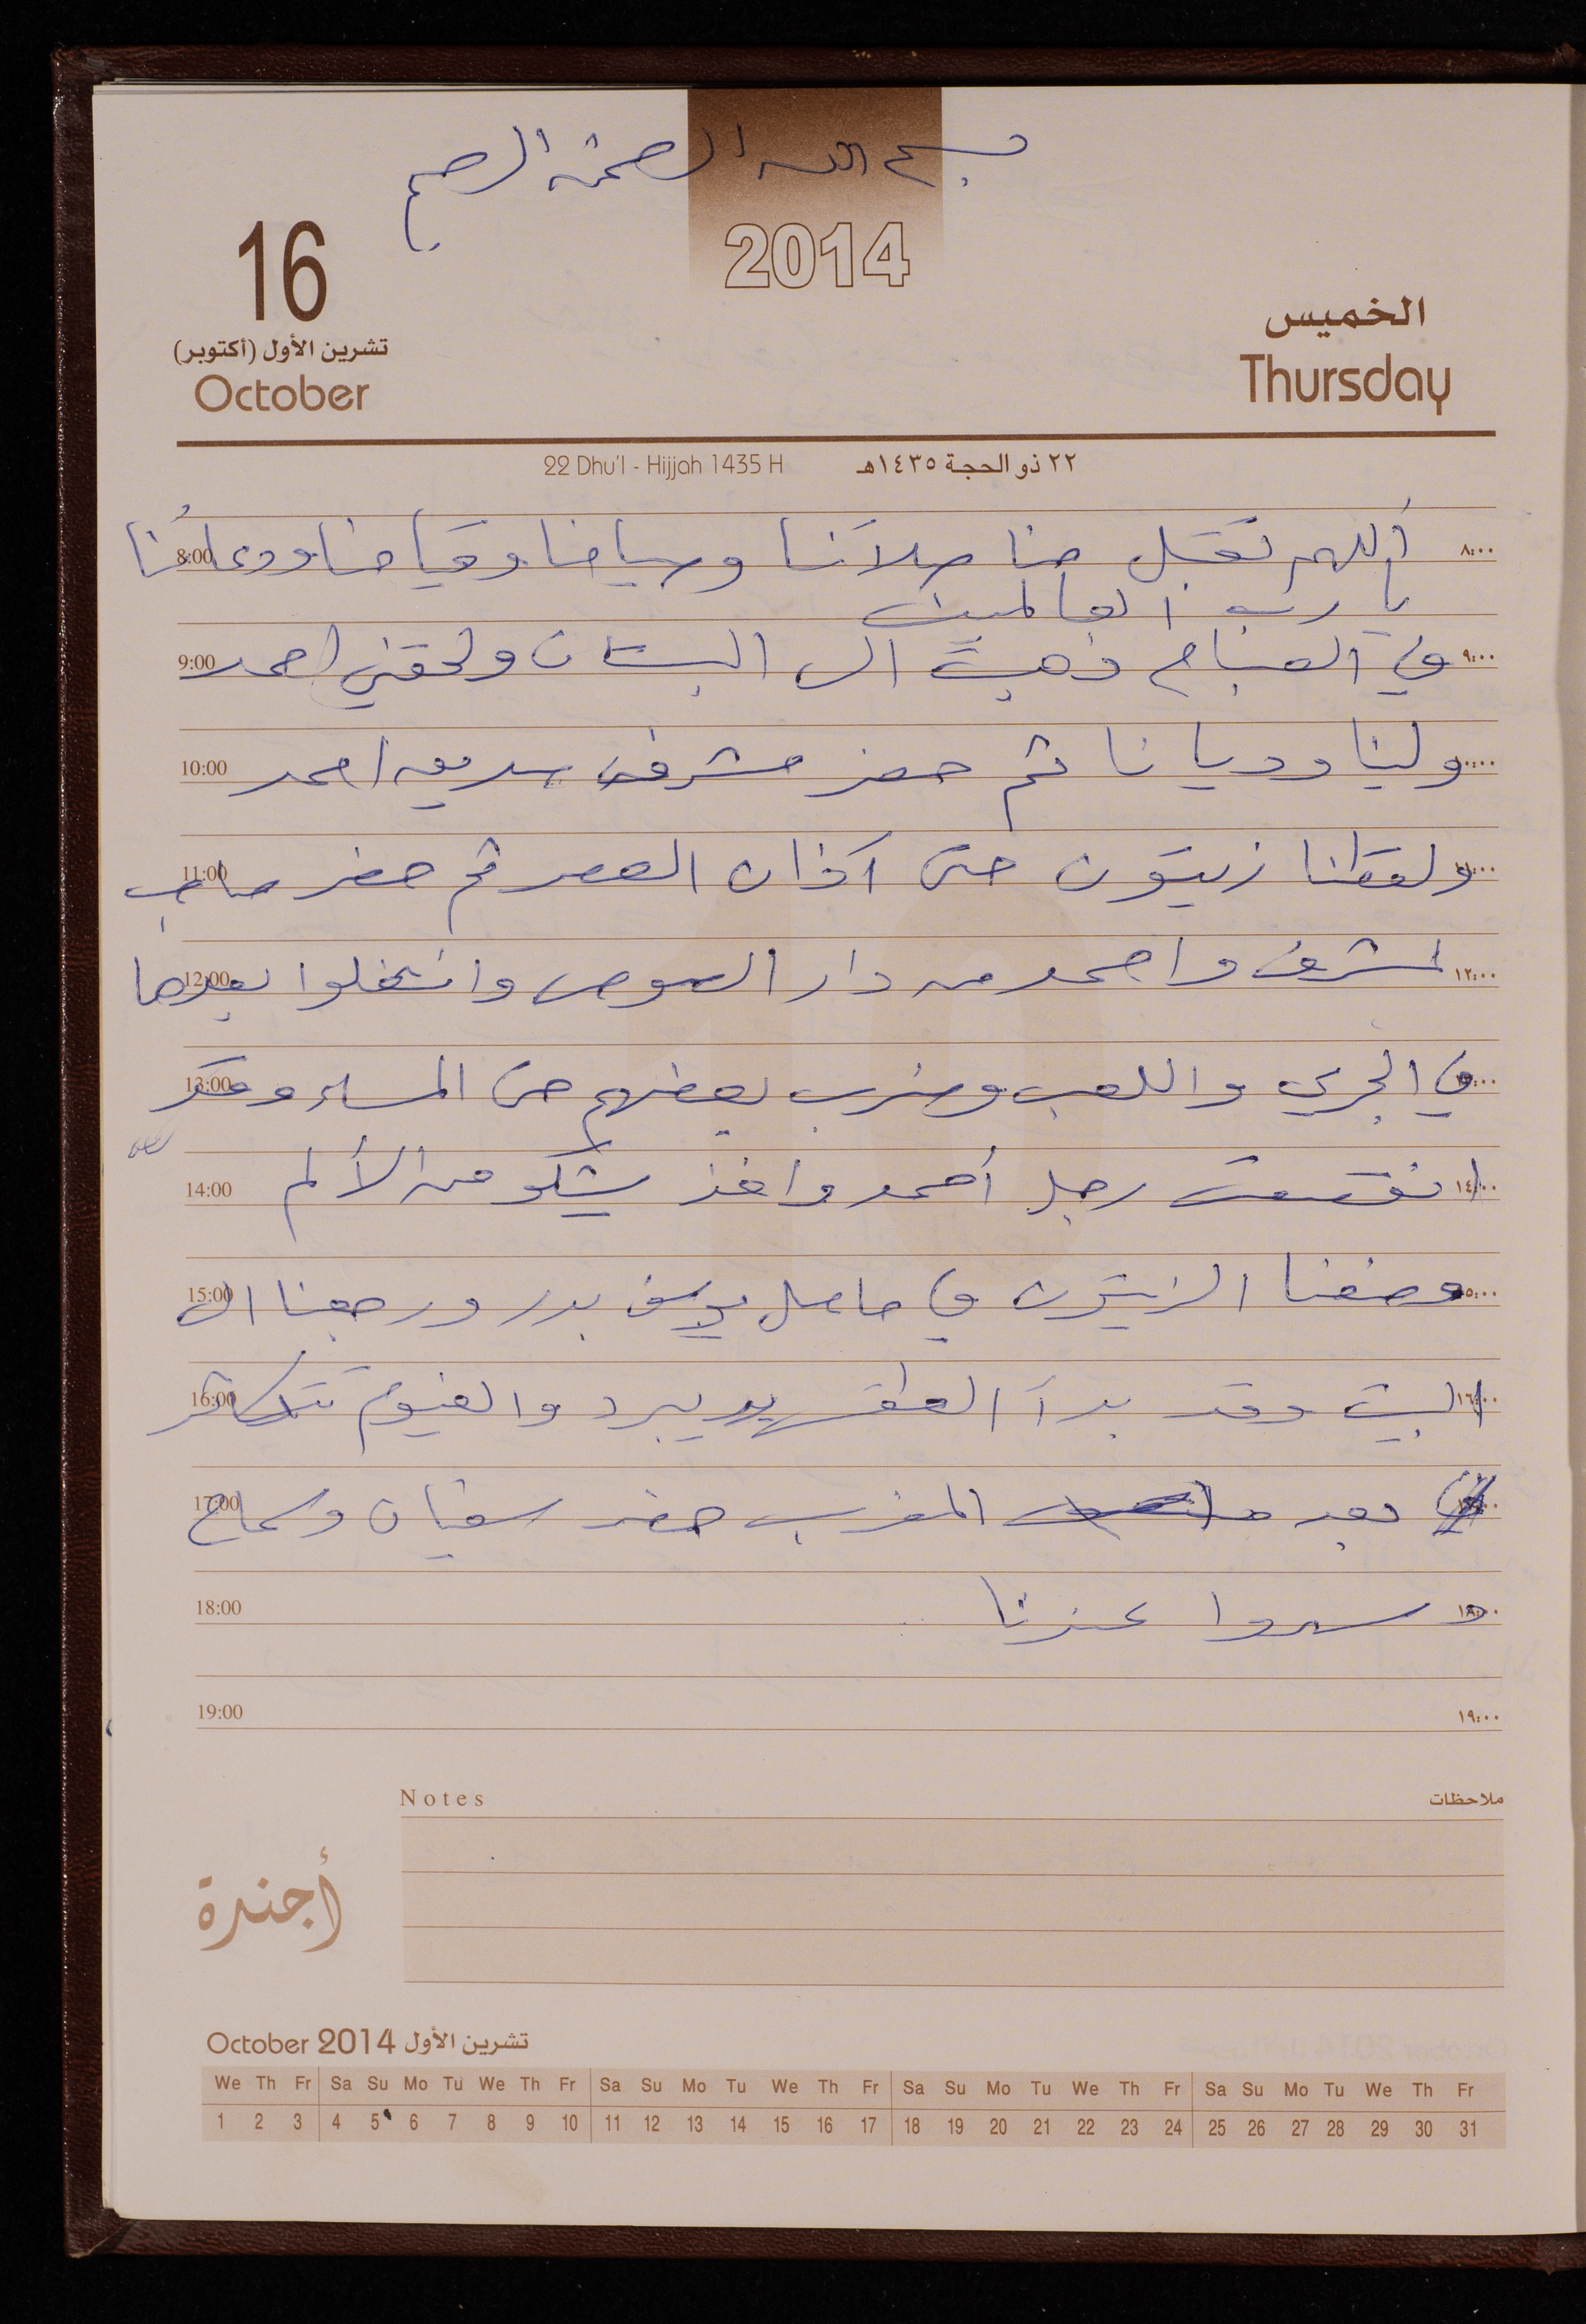 بسم الله الرحمن الرحيم
2014
16
تشرين الأول (أكتوبر)
October
الخميس
Thursday
22 Dhu'l - Hijjah 1435 H ٢٢ ذو الحجة ١٤٣٥هـ
أللهم تقبل منا صلاتنا وصيامنا وقيامنا ودعائنا
8:00 ٨:٠٠
يا رب العالمين
في الصباح ذهبت الى البستان ولحقني احمد
9:00 ٩:٠٠
ولينا وديانا ثم حضر مشرف صديق احمد
10:00 ١٠:٠٠
ولقطنا زيتون حتى آذان العصر ثم حضر صاحب
11:00 ١١:٠٠
لمشرف واحمد من دار الصوص وانشغلوا بعدها
12:00 ١٢:٠٠
في الجري واللعب وضرب بعضهم حتى المساء وقد
13:00 ١٣:٠٠
انفقست رجل أحمد واخذ يشكو من الألم
14:00 ١٤:٠٠
وضعنا الزيتون في حاصل يوسف بدر ورجعنا الى
15:00 ١٥:٠٠
البيت وقد بدأ الطقس يبرد والغيوم تتكاثر
16:00 ١٦:٠٠
بعد المغرب حضر سفيان وسماح
17:00 ١٧:٠٠
وسهروا عندنا
18:00 ١٨:٠٠
19:00 ١٩:٠٠
Notes ملاحظات
أجندة
October 2014 تشرين الأول
We Th Fr Sa Su Mo Tu We Th Fr Sa Su Mo Tu We Th Fr Sa Su Mo Tu We Th Fr Sa Su Mo Tu We Th Fr
1 2 3 4 5 6 7 8 9 10 11 12 13 14 15 16 17 18 19 20 21 22 23 24 25 26 27 28 29 30 31